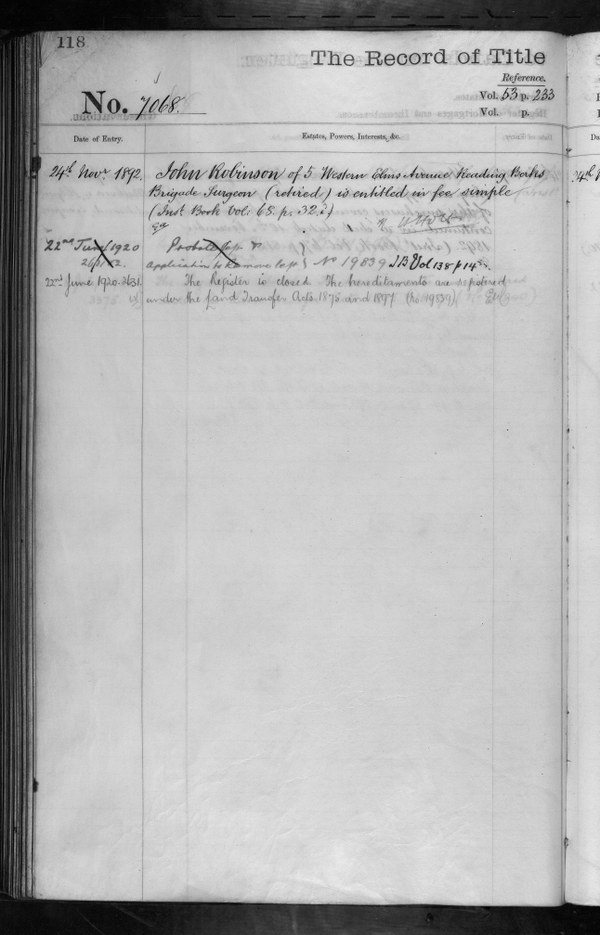 118
The Record of Title
Reference.
No. 7068.
Vol. 53 p. 233
Vol. p.
Date of Entry.
Estates, Powers, Interests, &c.
24th Novr 1892.
John Robinson of 5 Western Elms Avenue Reading Berks
Brigade Surgeon (retired) is entitled in fee simple
(Inst Book Vol: 65. p. 32.)
22nd June 1920
Probate
Application to Remove No 19839 IB Vol 138 p 14
22nd June 1920. 2631.
The Register is closed. The hereditaments are registered
under the Land Transfer Acts 1875 and 1897 (No 19839).